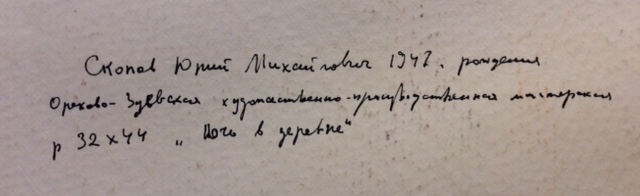 Скопов Юрий Михайлович 1947. рождения
Орехово-Зуевская художественно-производственная мастерская
р 32х44 „Ночь в деревне“